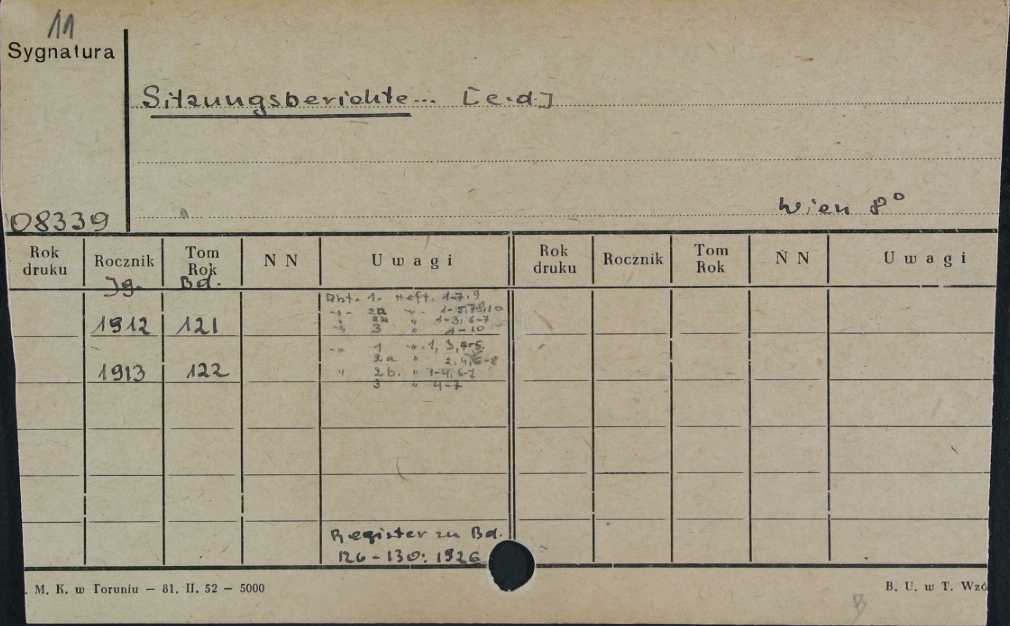 11
Sygnatura
Sitzungsberichte... [c.d.]
Wien 8°
08339
Rok druku Rocznik Tom Rok N N Uwagi Rok druku Rocznik Tom Rok N N Uwagi
Jg. Bd.
Abt. 1. Heft. 1-7.9
2a
1-3, 6-7
1912 121 3 " 1-10
1 1, 3,
2a "
1913 122 " 2b. "
3 " 4-7
Register zu Bd.
126-130: 1926
. M. K. w Toruniu — 81. II. 52 — 5000
B. U. w T. Wzó
B